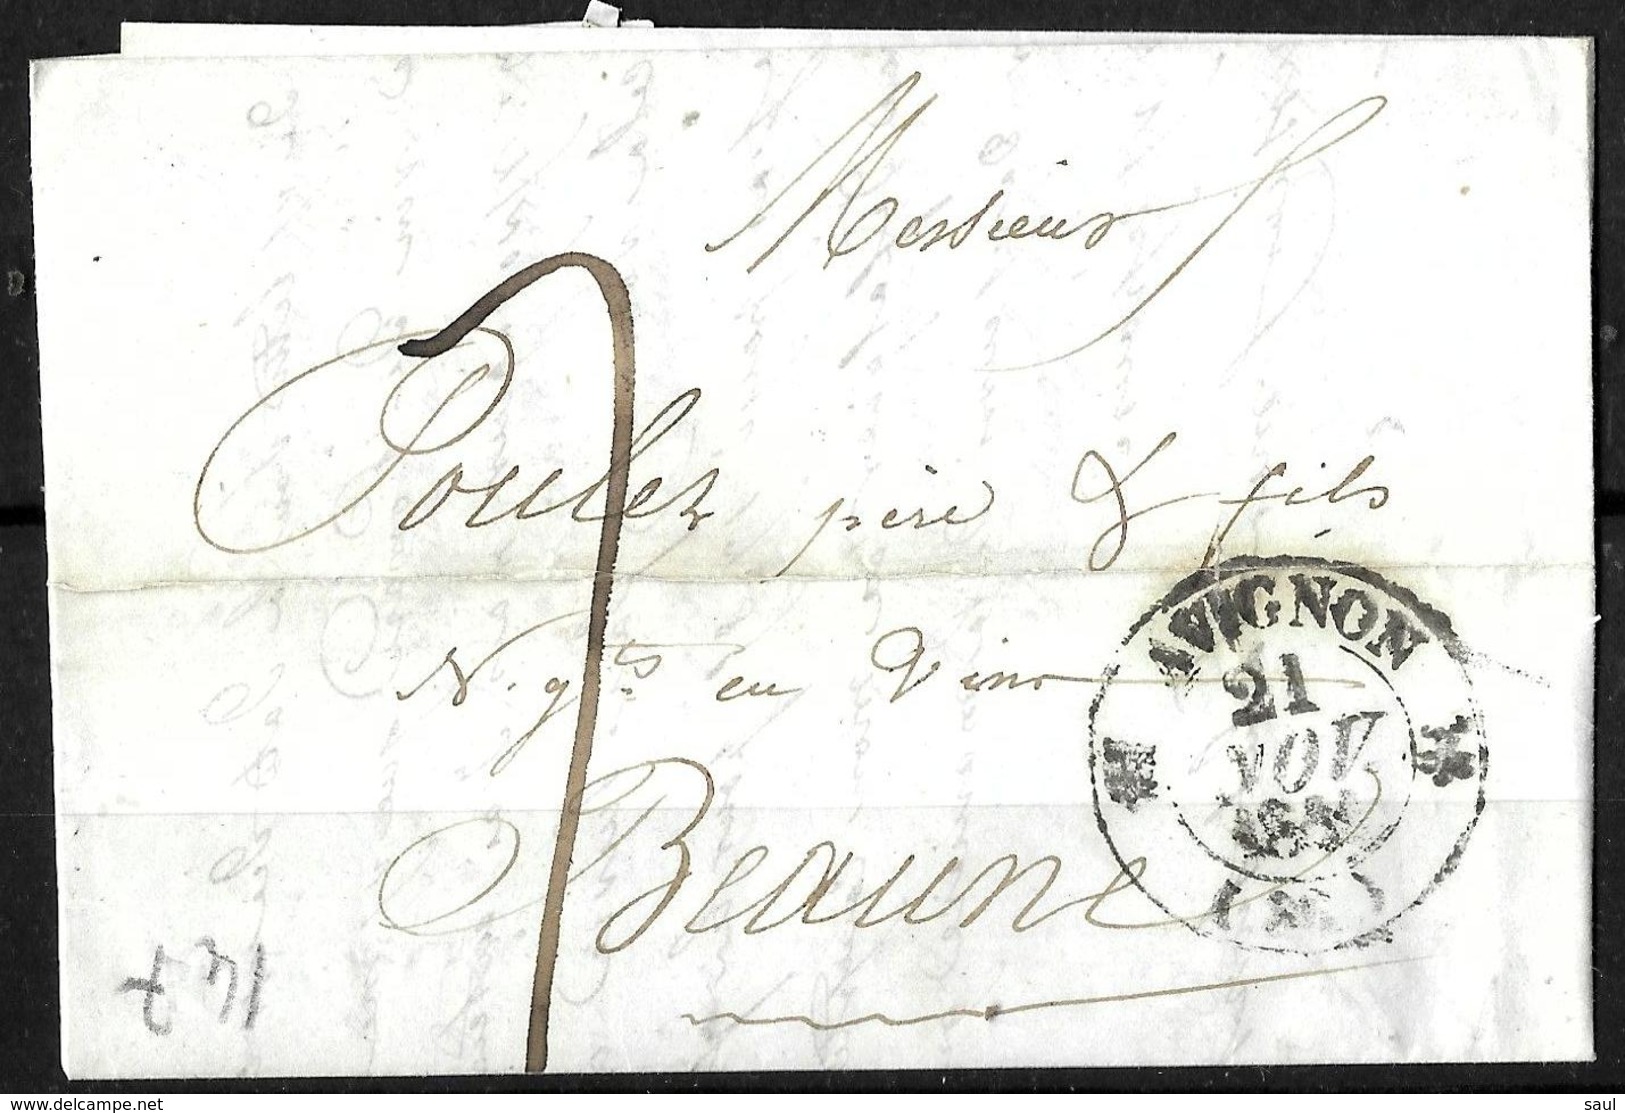 Messieurs
Poulet père & fils
N.gts en Vins
Beaune
AVIGNON
21
NOV
147
delcampe.net
saul